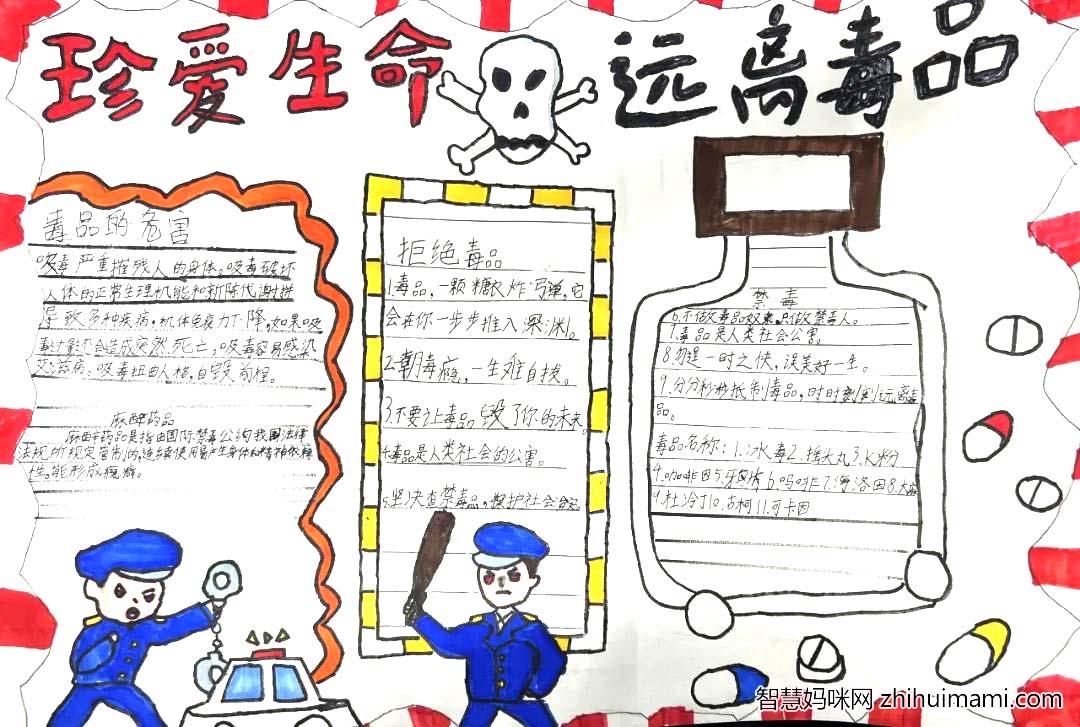 珍爱生命 远离毒品
毒品的危害
吸毒严重摧残人的身体。吸毒破坏
人体的正常生理机能和新陈代谢并
导致多种疾病,机体免疫力下降,如果吸
毒过量不会造成突然死亡,吸毒容易感染
艾滋病。吸毒扭曲人格,自毁前程。
麻醉药品
麻醉药品是指由国际禁毒公约我国法律
法规所规定管制的,连续使用易产生身体和精神依赖
性,能形成瘾癖。
拒绝毒品
1.毒品,一颗糖衣炸弹,它
会在你一步步推入深渊。
2.朝毒瘾,一生难自拔。
3.不要让毒品毁了你的未来。
4.毒品是人类社会的公害。
5.坚决查禁毒品,维护社会治安
禁毒
6.不做毒品奴隶,只做禁毒人。
7.毒品是人类社会公害。
8.勿逞一时之快,误美好一生。
9.分分秒秒抵制毒品,时时刻刻远离毒
品。
毒品名称:1.冰毒2.摇头丸3.K粉
4.咖啡因5.牙因片6.吗啡7.海洛因8.大麻
9.杜冷丁10.古柯11.可卡因
智慧妈咪网 zhihuimami.com